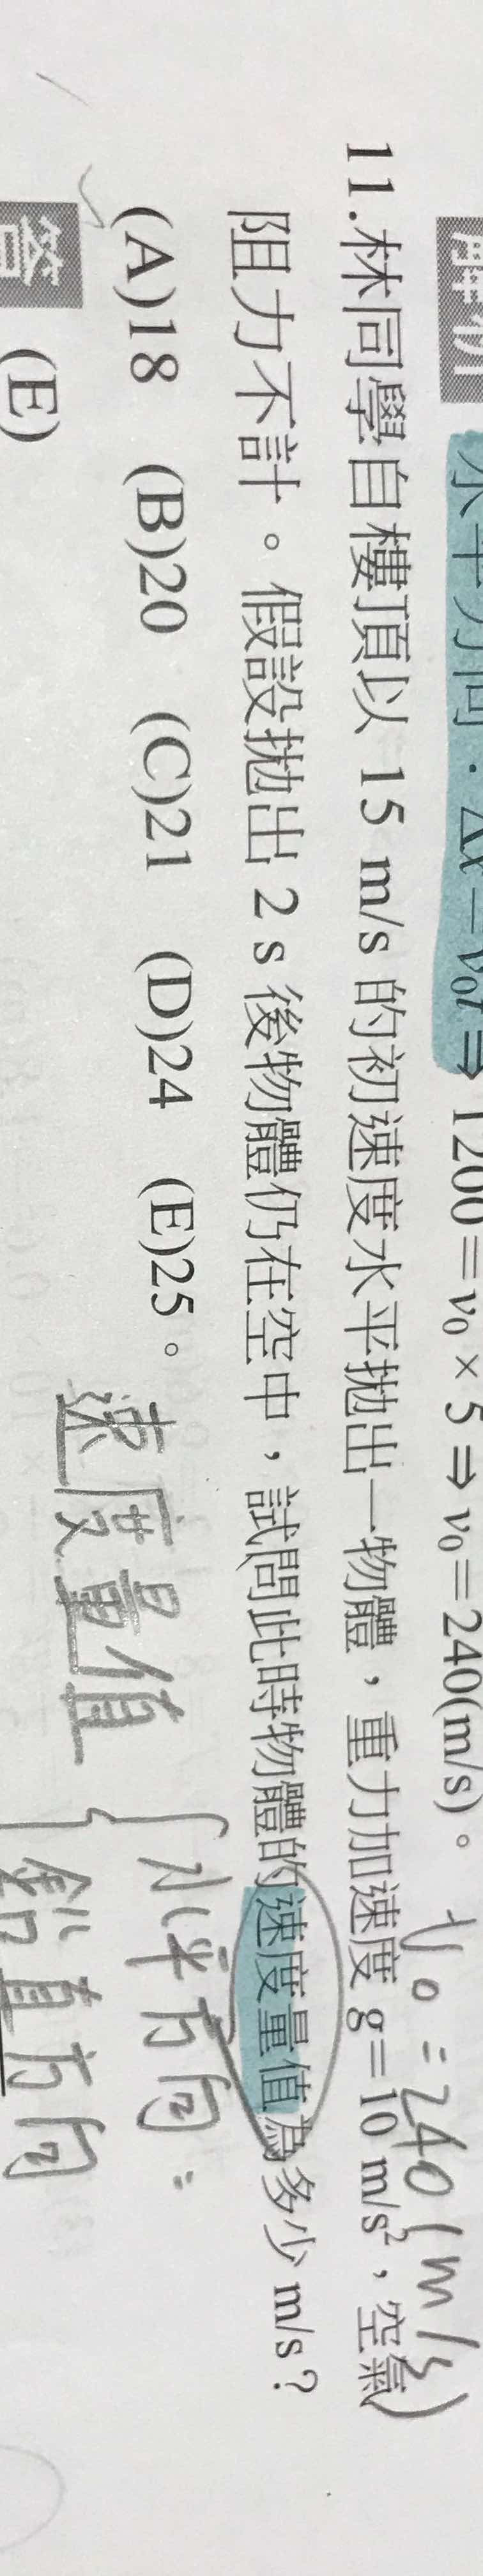 解析 水平方向：Δx＝v₀t ⇒ 1200＝v₀×5 ⇒ v₀＝240(m/s)。
v₀ = 240 (m/s)
11.林同學自樓頂以 15 m/s 的初速度水平拋出一物體，重力加速度 g＝10 m/s²，空氣
阻力不計。假設拋出 2 s 後物體仍在空中，試問此時物體的速度量值為多少 m/s？
(A)18 (B)20 (C)21 (D)24 (E)25。
速度量值 { 水平方向：
鉛直方向
答 (E)